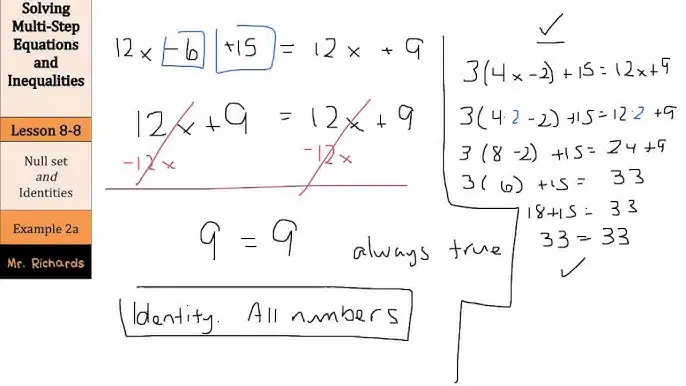 Solving
Multi-Step
Equations
and
Inequalities
Lesson 8-8
Null set
and
Identities
Example 2a
Mr. Richards
12x -6 +15 = 12x + 9
12x + 9 = 12x + 9
-12x -12x
9 = 9 always true
Identity. All numbers
✓
3(4x-2)+15=12x+9
3(4·2-2)+15=12·2+9
3(8-2)+15=24+9
3(6)+15=33
18+15=33
33=33
✓